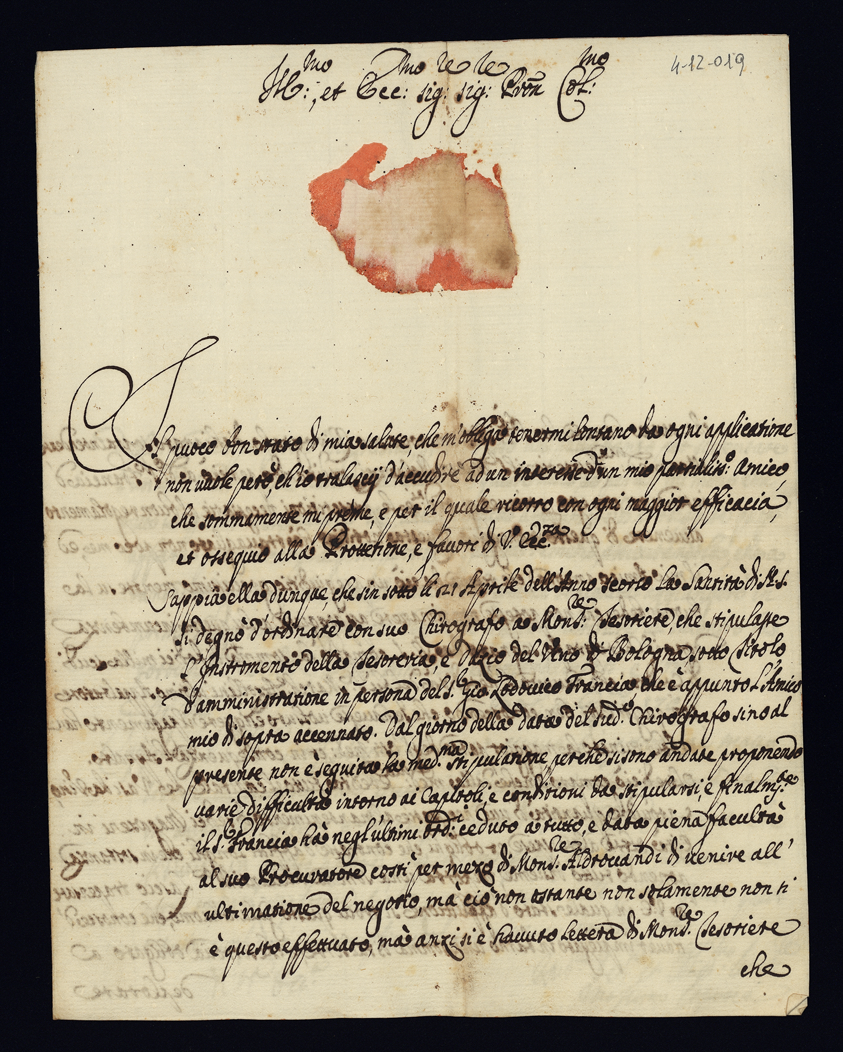 4-12-019
Ill:mo, et Ecc:mo sig:re sig:re Pron Col:mo
Il puoco bon stato di mia salute, che m'obliga tenermi lontano da ogni applicatione
non vuole però, ch'io tralascij d'accudire ad un interesse d'un mio partialiss:o Amico,
che sommamente mi preme, e per il quale ricorro con ogni maggior efficacia,
et ossequio alla Prottetione, e favori di V. Ecc:za
Sappia ella dunque, che sin sotto li 21 Aprile dell'Anno scorso la Santità di N.S.
si degnò d'ordinare con suo Chirografo a Mons:re Tesoriere, che stipulasse
l'Instrumento della Tesoreria, e Datio del Vino di Bologna sotto titolo
d'amministratione in persona del S. Gio Lodovico Francia che è appunto l'Amico
mio di sopra accennato. Dal giorno della data del sud:o Chirografo sino al
presente non è seguita la med:ma stipulatione perche si sono andate proponendo
varie difficultà intorno ai Capitoli, e conditioni da stipularsi, e finalm:te
il S. Francia hà negl'ultimi ord:i ceduto a tutto, e data piena facultà
al suo Procuratore costì per mezo di Mons:re Aldrovandi di venire all'
ultimatione del negotio, mà ciò non ostante non solamente non si
è questo effettuato, mà anzi si è havuto lettera di Mons:re Tesoriere
che